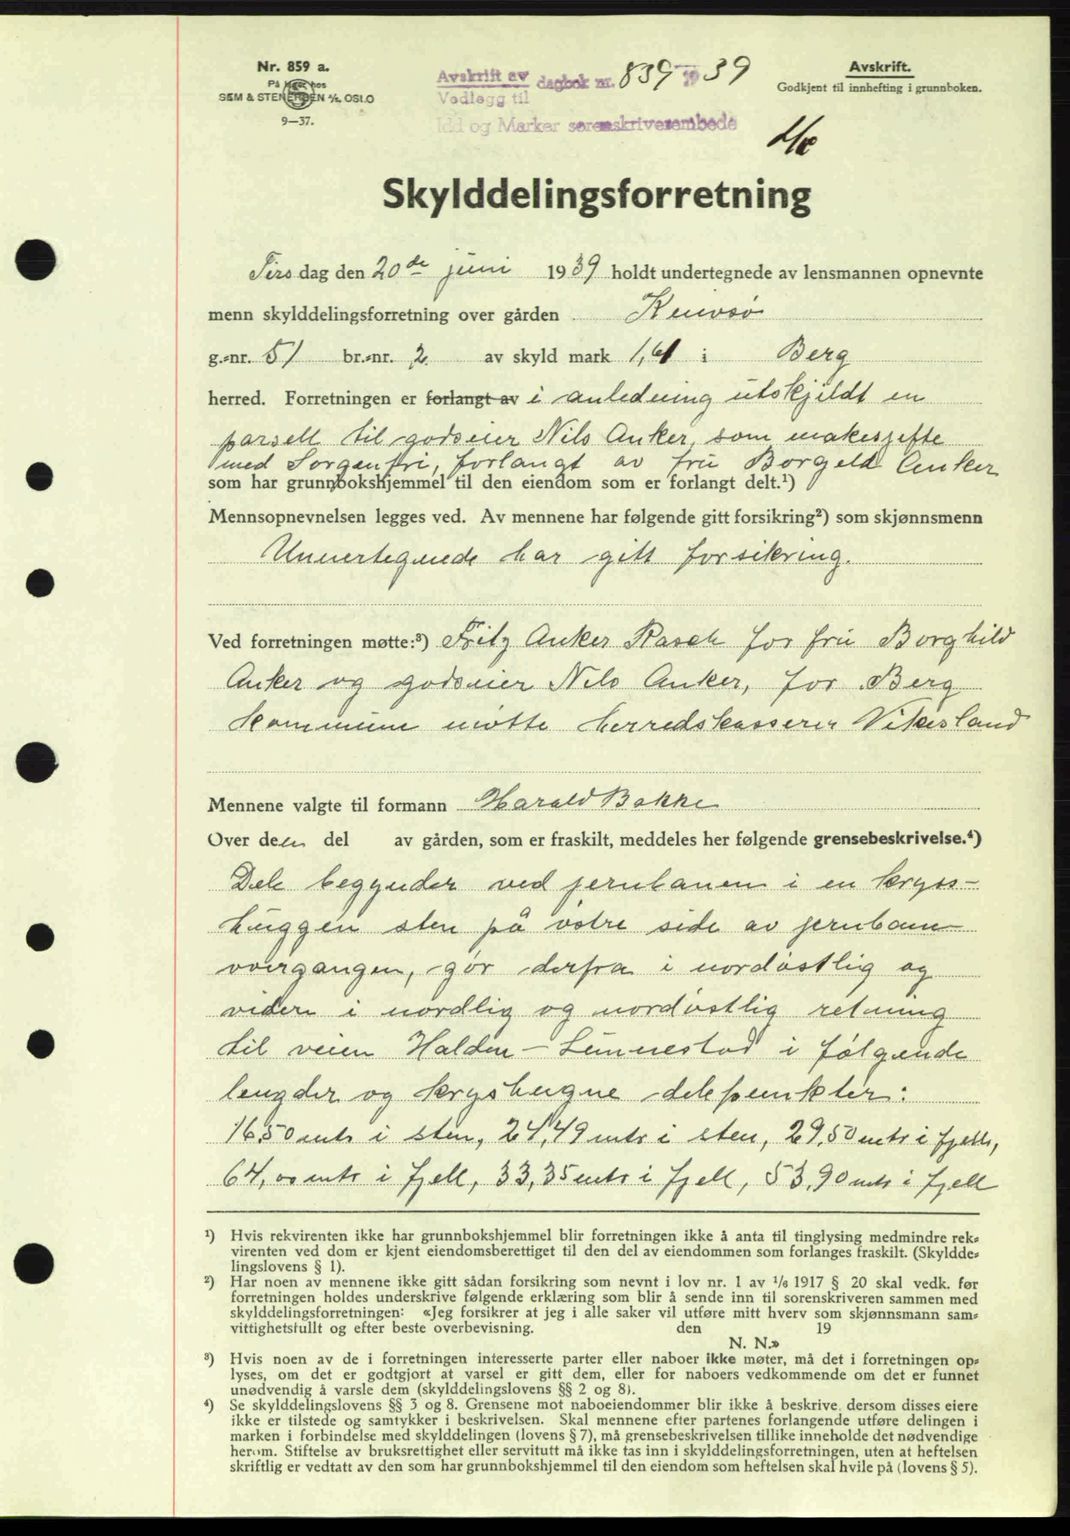 Nr. 859 a.
På lager hos
SEM & STENERSEN A/S, OSLO
9—37.
Avskrift av dagbok nr. 839 1939
Vedlegg til
Idd og Marker sorenskriverembede
Avskrift.
Godkjent til innhefting i grunnboken.
Skylddelingsforretning
Tirsdag den 20de juni 1939 holdt undertegnede av lensmannen opnevnte
menn skylddelingsforretning over gården Knivsø
g.-nr. 51 br.-nr. 2 av skyld mark 1,61 i Berg
herred. Forretningen er forlangt av i anledning utskjildt en
parsell til godseier Nils Anker, som makesjefte
med Sorgenfri, forlangt av fru Borgeld Anker
som har grunnbokshjemmel til den eiendom som er forlangt delt.¹)
Mennsopnevnelsen legges ved. Av mennene har følgende gitt forsikring²) som skjønnsmenn
Unnertegnede har gitt forsikring.
Ved forretningen møtte:³) Fritz Anker Rasch for fru Borghild
Anker og godseier Nils Anker, for Berg
kommune møtte herredskasserer Vikesland
Mennene valgte til formann Harald Bakke
Over den del av gården, som er fraskilt, meddeles her følgende grensebeskrivelse.⁴)
Dele begynder ved jernbanen i en kryss-
huggen sten på østre side av jernbane-
overgangen, gør derfra i nordøstlig og
videre i nordlig og nordøstlig retning
til veien Halden - Linnestad i følgende
lengder og kryshugne delepunkter:
16,50 mtr i sten, 24,49 mtr i sten, 29,50 mtr i fjell,
64,00 mtr i fjell, 33,35 mtr i fjell, 53,90 mtr i fjell
¹) Hvis rekvirenten ikke har grunnbokshjemmel blir forretningen ikke å anta til tinglysing medmindre rek-
virenten ved dom er kjent eiendomsberettiget til den del av eiendommen som forlanges fraskilt. (Skyldde-
lingslovens § 1).
²) Har noen av mennene ikke gitt sådan forsikring som nevnt i lov nr. 1 av 1/6 1917 § 20 skal vedk. før
forretningen holdes underskrive følgende erklæring som blir å sende inn til sorenskriveren sammen med
skylddelingsforretningen: «Jeg forsikrer at jeg i alle saker vil utføre mitt hverv som skjønnsmann sam-
vittighetsfullt og efter beste overbevisning. den 19
N. N.»
³) Hvis noen av de i forretningen interesserte parter eller naboer ikke møter, må det i forretningen op-
lyses, om det er godtgjort at varsel er gitt dem, eller for naboers vedkommende om det er funnet
unødvendig å varsle dem (skylddelingslovens §§ 2 og 8).
⁴) Se skylddelingslovens §§ 3 og 8. Grensene mot naboeiendommer blir ikke å beskrive, dersom disses eiere
ikke er tilstede og samtykker i beskrivelsen. Skal mennene efter partenes forlangende utføre delingen i
marken i forbindelse med skylddelingen (lovens § 7), må grensebeskrivelsen tillike inneholde det nødvendige
herom. Stiftelse av bruksrettighet eller servitutt må ikke tas inn i skylddelingsforretningen, uten at heftelsen
skriftlig er vedtatt av den som har grunnbokshjemmel til den eiendom som heftelsen skal hvile på (lovens § 5).